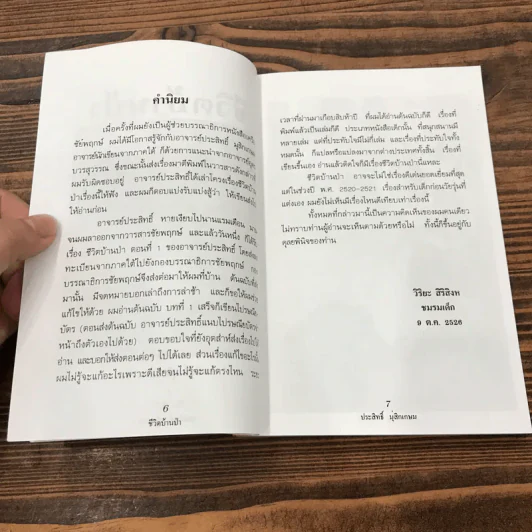 คำนิยม
เมื่อครั้งที่ผมยังเป็นผู้ช่วยบรรณาธิการหนังสือ
ชัยพฤกษ์ ผมได้มีโอกาสรู้จักกับอาจารย์ประสิทธิ์ มุสิกเกษม
อาจารย์นักเขียนจากภาคใต้ ก็ด้วยการแนะนำจากอาจารย์
บวรสุวรรณ ซึ่งขณะนั้นส่งเรื่องมาตีพิมพ์ในวารสารดังกล่าว
ผมรับผิดชอบอยู่ อาจารย์ประสิทธิ์ได้เล่าโครงเรื่องชีวิตบ้าน
ป่าเรื่องนี้ให้ฟัง และผมก็ตอบแบ่งรับแบ่งสู้ว่า ให้เขียนส่งมา
ให้อ่านก่อน
อาจารย์ประสิทธิ์ หายเงียบไปนานแรมเดือน
จนผมลาออกจากวารสารชัยพฤกษ์ และแล้ววันหนึ่ง ก็ได้รับ
เรื่อง ชีวิตบ้านป่า ตอนที่ 1 ของอาจารย์ประสิทธิ์ โดย
ทะเบียนจากภาคใต้ไปยังกองบรรณาธิการชัยพฤกษ์
บรรณาธิการชัยพฤกษ์จึงส่งต่อมาให้ผมที่บ้าน ต้นฉบับ
มานั้น มีจดหมายบอกเล่าถึงการล่าช้า และก็ขอให้ผมช่วย
แก้ไขให้ด้วย ผมอ่านต้นฉบับ บทที่ 1 เสร็จก็เขียนไปรษณีย
บัตร (ตอนส่งต้นฉบับ อาจารย์ประสิทธิ์แนบไปรษณียบัตร
หน้าถึงตัวเองไปด้วย) ตอบขอบใจที่ยังอุตส่าห์ส่งเรื่องไป
อ่าน และบอกให้ส่งตอนต่อๆ ไปได้เลย ส่วนเรื่องแก้ไขอะไรนั้น
ผมไม่รู้จะแก้อะไรเพราะดีเสียจนไม่รู้จะแก้ตรงไหน ระยะ
6
ชีวิตบ้านป่า
เวลาที่ผ่านมาเกือบสิบห้าปี ที่ผมได้อ่านต้นฉบับก็ดี เรื่องที่
พิมพ์แล้วเป็นเล่มก็ดี ประเภทหนังสือเด็กนั้น ที่สนุกสนานมี
หลายเล่ม แต่ที่ประทับใจมีไม่กี่เล่ม และเรื่องที่ประทับใจทั้ง
หมดนั้น ก็แปลหรือแปลงมาจากต่างประเทศทั้งสิ้น เรื่องที่
เขียนขึ้นเอง อ่านแล้วติดใจก็มีเรื่องชีวิตบ้านป่านี่แหละ
ชีวิตบ้านป่า อาจจะไม่ใช่เรื่องดีเด่นยอดเยี่ยมที่สุด
แต่ในช่วงปี พ.ศ. 2520-2521 เรื่องสำหรับเด็กก่อนวัยรุ่นที่
แต่งเอง ผมยังไม่เห็นมีเรื่องไหนดีเทียบเท่าเรื่องนี้
ทั้งหมดที่กล่าวมานี้เป็นความคิดเห็นของผมคนเดียว
ไม่ทราบท่านผู้อ่านจะเห็นตามด้วยหรือไม่ ทั้งนี้ก็ขึ้นอยู่กับ
ดุลยพินิจของท่าน
วิริยะ สิริสิงห
ชมรมเด็ก
9 ต.ค. 2526
7
ประสิทธิ์ มุสิกเกษม